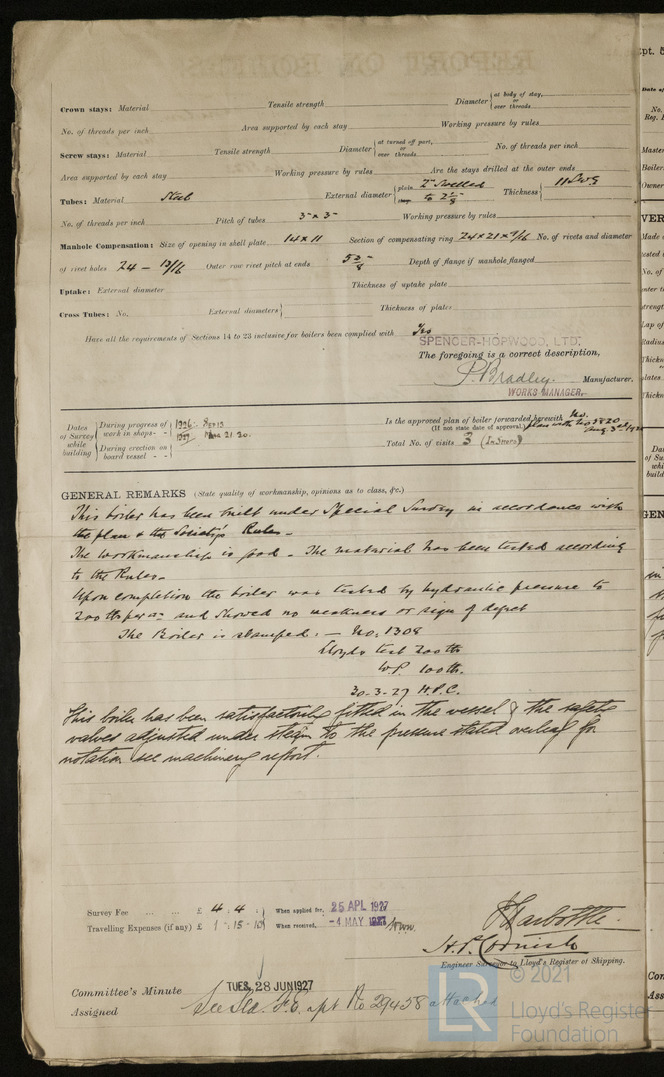 Crown stays: Material Tensile strength Diameter { at body of stay, or over threads
No. of threads per inch Area supported by each stay Working pressure by rules
Screw stays: Material Tensile strength Diameter { at turned off part, or over threads No. of threads per inch
Area supported by each stay Working pressure by rules Are the stays drilled at the outer ends
Tubes: Material Steel External diameter { plain 2" Swelled to 2 1/8 Thickness { 11 LWG
No. of threads per inch Pitch of tubes 3" x 3" Working pressure by rules
Manhole Compensation: Size of opening in shell plate 14 x 11 Section of compensating ring 24 x 21 x 9/16 No. of rivets and diameter
of rivet holes 24 — 13/16 Outer row rivet pitch at ends 5 3/8 Depth of flange if manhole flanged
Uptake: External diameter Thickness of uptake plate
Cross Tubes: No. External diameters } Thickness of plates
Have all the requirements of Sections 14 to 23 inclusive for boilers been complied with Yes
SPENCER-HOPWOOD, LTD.
The foregoing is a correct description,
P. Bradley. Manufacturer.
WORKS MANAGER.
Dates of Survey while building { During progress of work in shops - - } 1926 Sep 13 1927 Mar 21 30.
{ During erection on board vessel - - }
Is the approved plan of boiler forwarded herewith No.
(If not state date of approval.) plan with No 9820 Aug. 3rd 192
Total No. of visits 3 (In Shops)
GENERAL REMARKS (State quality of workmanship, opinions as to class, &c.)
This boiler has been built under Special Survey in accordance with
the plan & the Society's Rules.
The workmanship is good. The material has been tested according
to the Rules.
Upon completion the boiler was tested by hydraulic pressure to
200 lbs per □" and showed no weakness or sign of defect
The Boiler is stamped: — No: 1308
Lloyds test 200 lbs.
W.P. 100 lbs.
30-3-27 H.P.C.
This boiler has been satisfactorily fitted in the vessel & the safety
valves adjusted under steam to the pressure stated overleaf for
notation see machinery report.
Survey Fee ... ... £ 4 . 4 : } When applied for, 25 APL 1927
Travelling Expenses (if any) £ 1 . 15 . 10 } When received, -4 MAY 1927
H.P. Cornish
Engineer Surveyor to Lloyd's Register of Shipping.
Committee's Minute TUES, 28 JUN 1927
Assigned See Sld. F.E. rpt No 29458 attached
© 2021
LR Lloyd's Register
Foundation